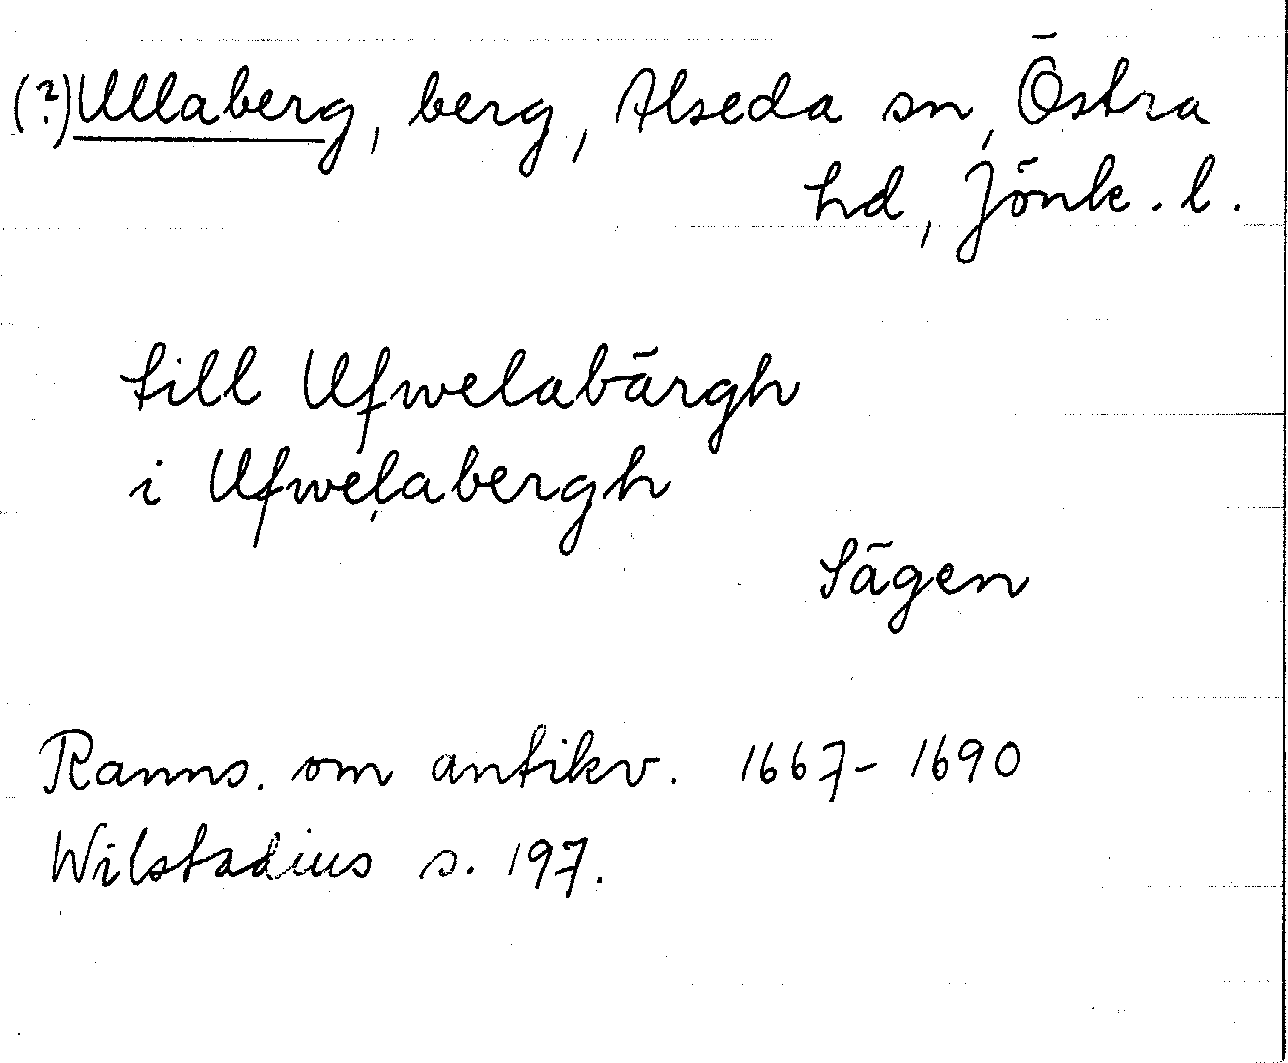 (?) Ullaberg, berg, Alseda sn, Östra
hd, Jönk. l.
till Ufwelabärgh
i Ufwelabergh
Sägen
Ranns. om antikv. 1667-1690
Wilstadius s. 197.